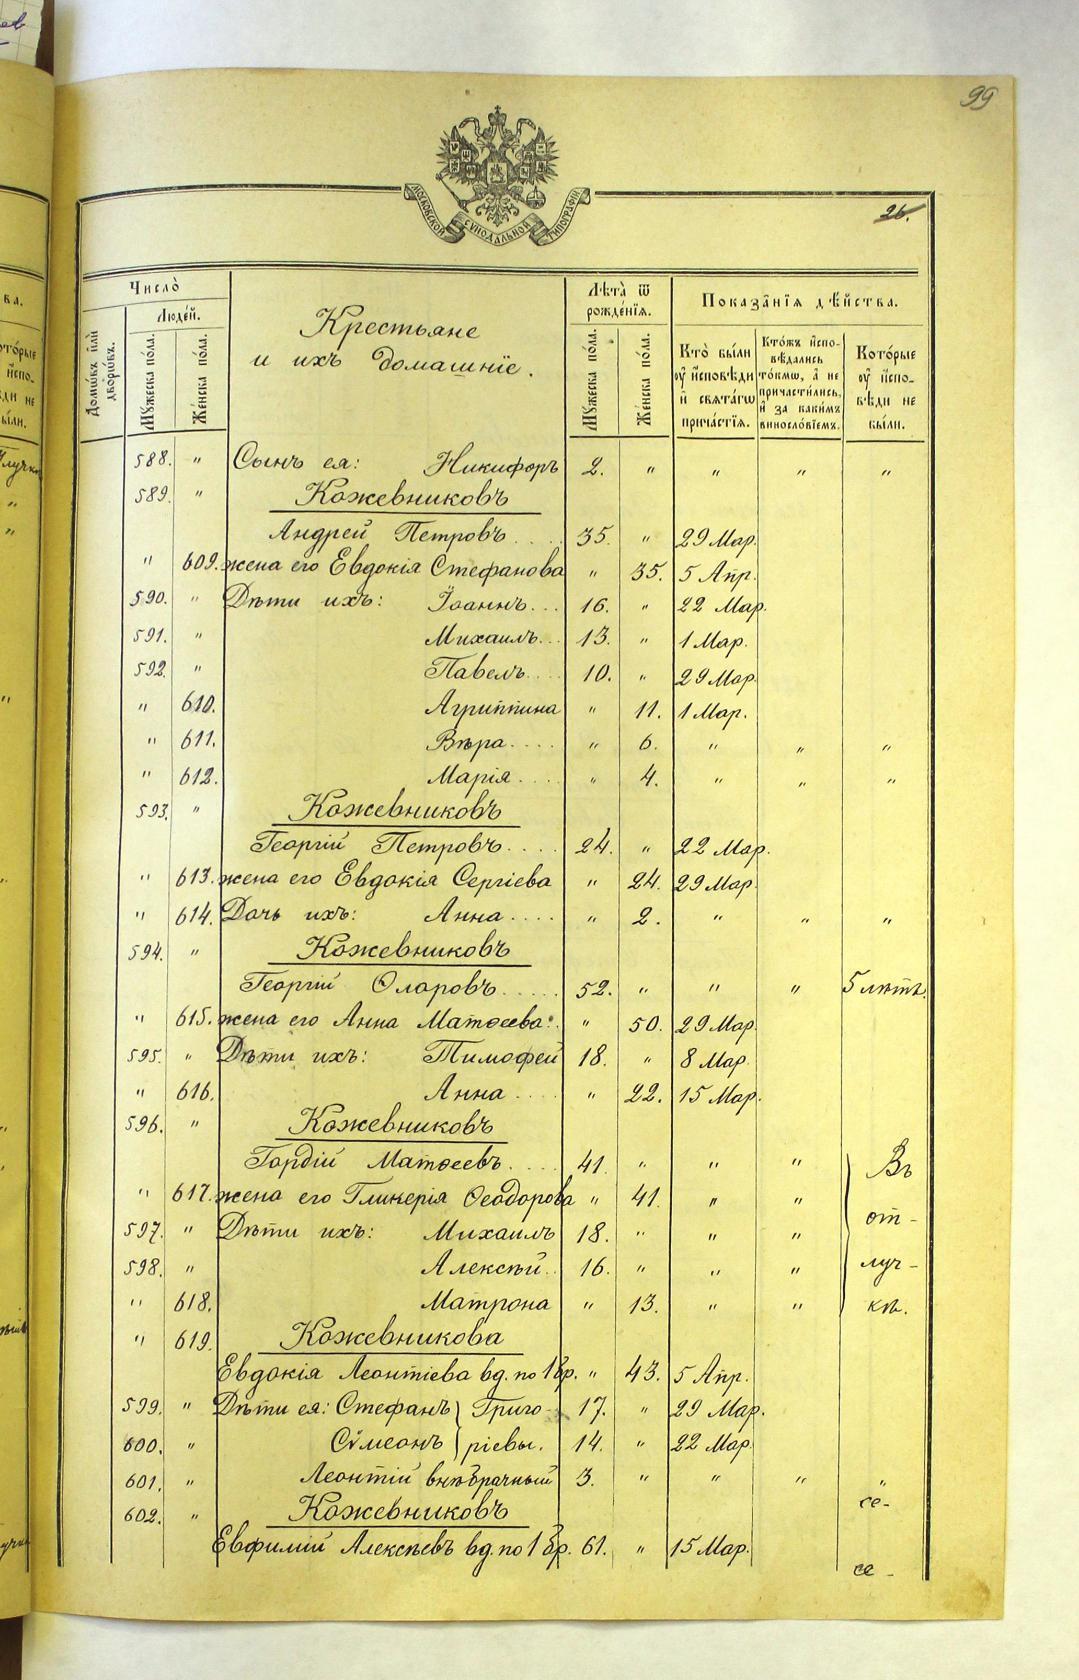 99
МОСКОВСКОЙ СѴНОДАЛЬНОЙ ТИПОГРАФІИ
26.
Число̀
Людей.
Домѡвъ и҆лѝ дворѡвъ.
Мꙋжеска по́ла.
Же́нска по́ла.
Крестьяне
и ихъ домашніе.
Лѣта̀ ѿ рожде́нїѧ.
Мꙋжеска по́ла.
Же́нска по́ла.
Показа̑нїѧ дѣ́йства.
Кто̀ бы́ли ᲂу҆ и҆сповѣди и҆ свѧта́гѡ прича́стїѧ.
Кто́жъ и҆спо-вѣдались то́кмѡ, а҆ не причасти́лись, и҆ за каки́мъ винослóвїемъ.
Кото́рые ᲂу҆ и҆спо-вѣди не бы́ли.
588. " Сынъ ея: Никифоръ 2. " " " "
589. " Кожевниковъ
Андрей Петровъ.... 35. " 29 Мар.
" 609. жена его Евдокія Стефанова " 35. 5 Апр.
590. " Дѣти ихъ: Іоаннъ... 16. " 22 Мар.
591. " Михаилъ... 13. " 1 Мар.
592. " Павелъ.... 10. " 29 Мар.
" 610. Агриппина " 11. 1 Мар.
" 611. Вѣра.... " 6. " " "
" 612. Марія.... " 4. " " "
593. " Кожевниковъ
Георгій Петровъ.... 24. " 22 Мар.
" 613. жена его Евдокія Сергіева " 24. 29 Мар.
" 614. Дочь ихъ: Анна.... " 2. " " "
594. " Кожевниковъ
Георгій Ѳларовъ..... 52. " " " 5 лѣтъ.
" 615. жена его Анна Матѳеева.. " 50. 29 Мар.
595. " Дѣти ихъ: Тимофей 18. " 8 Мар.
" 616. Анна.... " 22. 15 Мар.
596. " Кожевниковъ
Гордій Матѳеевъ.... 41. " " " Въ
" 617. жена его Гликерія Ѳеодорова " 41. " " от-
597. " Дѣти ихъ: Михаилъ 18. " " "
598. " Алексѣй.. 16. " " " луч-
" 618. Матрона " 13. " " кѣ.
" 619. Кожевникова
Евдокія Леонтіева вд. по 1 бр. " 43. 5 Апр.
599. " Дѣти ея: Стефанъ } Григо- 17. " 29 Мар.
600. " Сѵмеонъ } ріевы. 14. " 22 Мар.
601. " Леонтій внѣбрачный 3. " " " "
се-
602. " Кожевниковъ
Евфимій Алексѣевъ вд. по 1 бр. 61. " 15 Мар.
се-